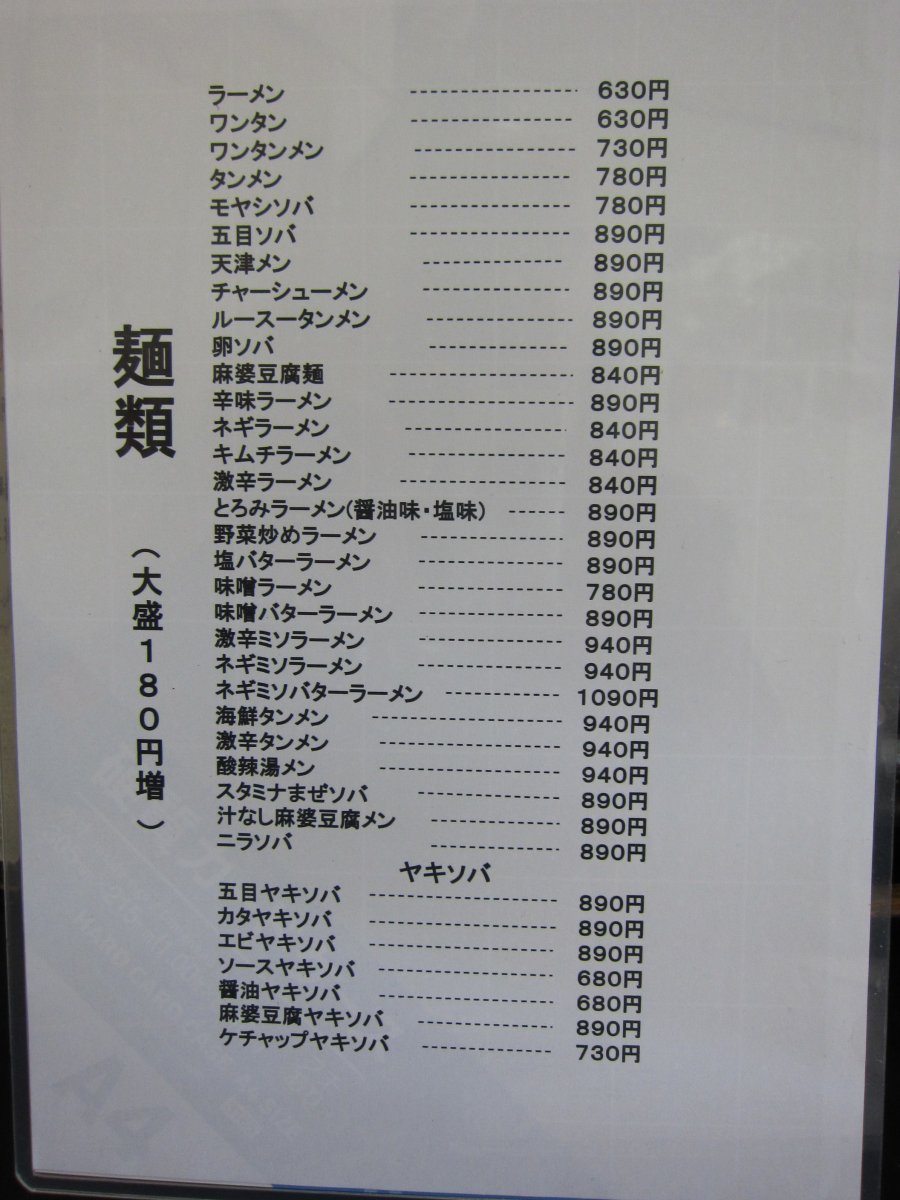 麺類
（大盛180円増）
ラーメン ------------------ 630円
ワンタン ------------------ 630円
ワンタンメン ------------------ 730円
タンメン ------------------ 780円
モヤシソバ ------------------ 780円
五目ソバ ------------------ 890円
天津メン ---------------- 890円
チャーシューメン ---------------- 890円
ルースータンメン ---------------- 890円
卵ソバ ---------------- 890円
麻婆豆腐麺 --------------------- 840円
辛味ラーメン --------------------- 890円
ネギラーメン ------------------ 840円
キムチラーメン ------------------ 840円
激辛ラーメン ------------------ 840円
とろみラーメン(醤油味・塩味) ------ 890円
野菜炒めラーメン ---------------- 890円
塩バターラーメン ---------------- 890円
味噌ラーメン ---------------- 780円
味噌バターラーメン ---------------- 890円
激辛ミソラーメン ---------------- 940円
ネギミソラーメン ---------------- 940円
ネギミソバターラーメン ------------- 1090円
海鮮タンメン --------------------- 940円
激辛タンメン --------------------- 940円
酸辣湯メン --------------------- 940円
スタミナまぜソバ ---------------- 890円
汁なし麻婆豆腐メン --------------- 890円
ニラソバ --------------- 890円
ヤキソバ
五目ヤキソバ --------------------- 890円
カタヤキソバ --------------------- 890円
エビヤキソバ --------------------- 890円
ソースヤキソバ -------------------- 680円
醤油ヤキソバ -------------------- 680円
麻婆豆腐ヤキソバ --------------- 890円
ケチャップヤキソバ --------------- 730円
A4